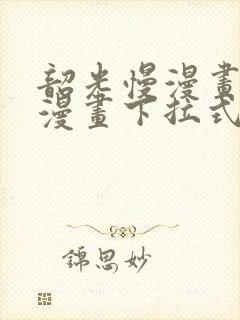 韶光慢漫畫
漫畫下拉式
錦思妙